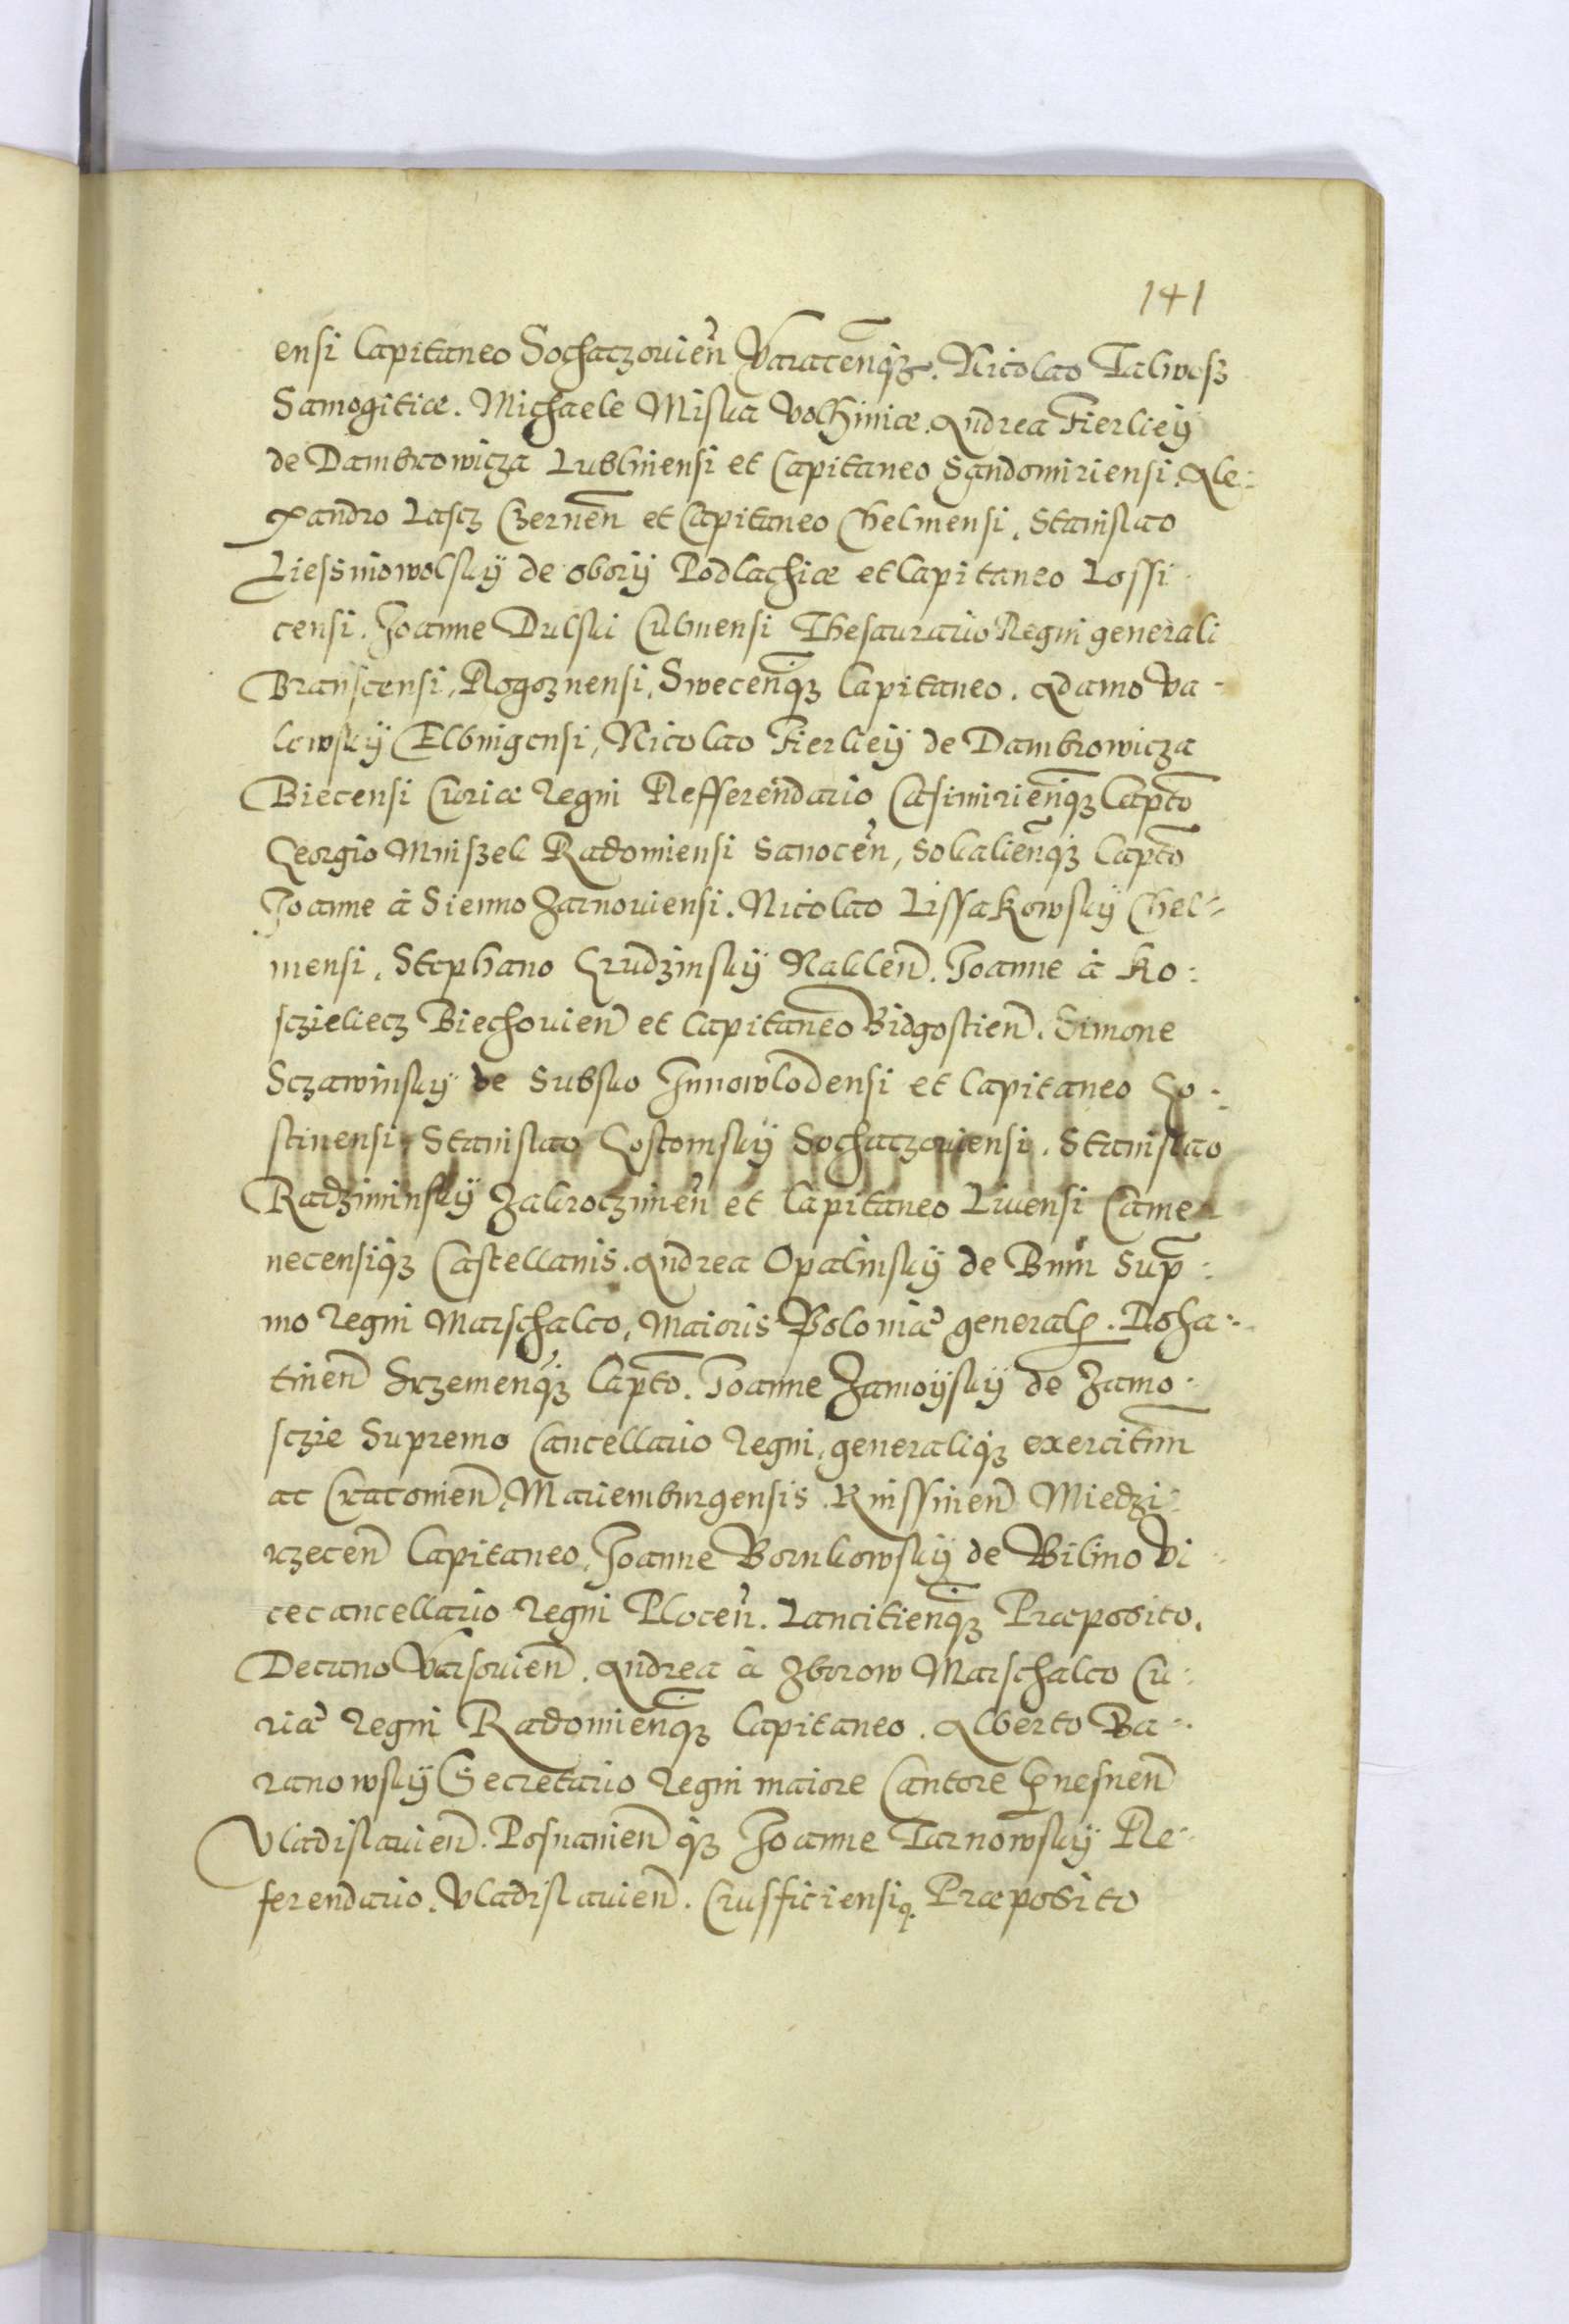 141
ensi Capitaneo Sochaczovień Varacenq̃ꝫ. Nicolao Talwosz
Samogitiæ. Michaele Miska Volhiniæ. Andrea Fierliey
de Dambrowicza Lublinensi et Capitaneo Sandomiriensi. Ale=
xandro Lascz Czerneñ et Capitaneo Chelmensi, Stanislao
Liessniowolsky de obory Podlachiæ et Capitaneo Lossi
censi. Joanne Dulski Culmensi Thesaurario Regni generali
Branscensi, Rogoznensi, Swecenq̃ꝫ Capitaneo. Adamo Va-
lewsky Elbingensi, Nicolao Fierliey de Dambrowicza
Biecensi Curiæ Regni Refferendario Casimirienq̃ꝫ Capt̃o
Georgio Mniszek Radomiensi Sanoceñ, Sokalienq̃ꝫ Capt̃o
Joanne à Sienno Zarnoviensi. Nicolao Lissakowsky Chel=
mensi, Stephano Grudzinsky Nakleñ. Joanne à Ko:
sczieliecz Biechovieñ et Capitaneo Bidgostieñ. Simone
Sczawinsky de Subsko Innowlodensi et Capitaneo Go-
stinensi, Stanislao Gostomsky Sochaczoviensi. Stanislao
Radziminsky Zakroczimeñ et Capitaneo Livensi Came
necensiqꝫ Castellanis. Andrea Opalinsky de Bnin Sup̃:
mo Regni Marschalco, Maioris Poloniæ generali. Roha=
tineñ Srzemenq̃ꝫ Capt̃o. Joanne Zamoysky de Zamo-
sczie Supremo Cancellario Regni, generaliqꝫ exercitũm
ac Cracovieñ, Mariemburgensis. Knissineñ Miedzi-
rzeceñ Capitaneo, Joanne Borukowsky de Bilino Vi-
cecancellario Regni Ploceñ. Lancitienq̃ꝫ Præposito,
Decano Varsovieñ. Andrea à Zborow Marschalco Cu-
riæ Regni Radomienq̃ꝫ Capitaneo. Alberto Ba-
ranowsky Secretario Regni maiore Cantore Gnesneñ
Vladislavieñ. Posnanieñ qꝫ Joanne Tarnowsky Re-
ferendario. Vladislavieñ. Crusficiensiq. Præposito